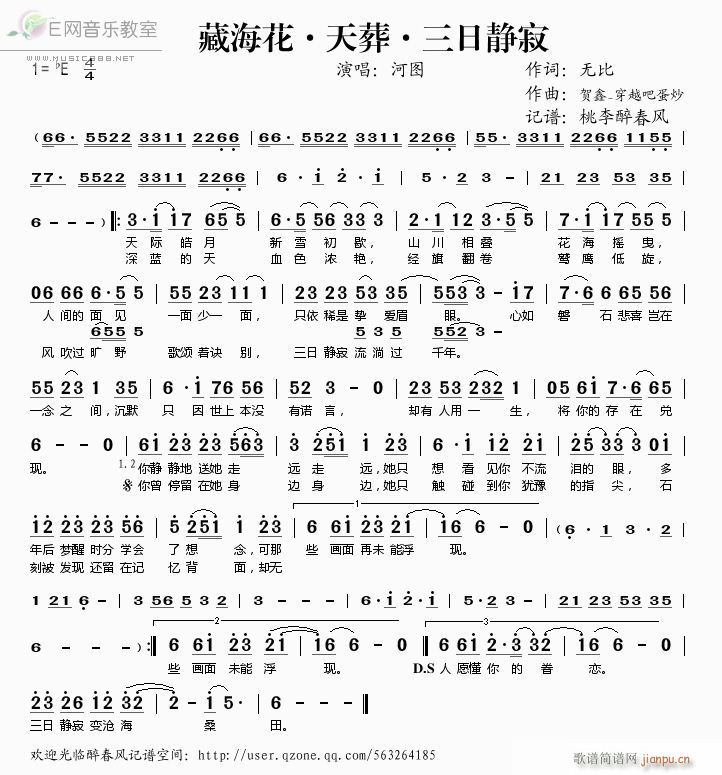 E网音乐教室
www.music888.net
藏海花·天葬·三日静寂
1=♭E 4/4
演唱：河图
作词：无比
作曲：贺鑫-穿越吧蛋炒
记谱：桃李醉春风
(66· 5522 3311 2266 | 66· 5522 3311 2266 | 55· 3311 2266 1155 |
77· 5522 3311 2266 | 6·i 2·i | 5·2 3 - | 21 23 53 35 |
6 - - - ) ‖: 3·i i7 65 5 | 6·5 56 33 3 | 2·1 12 3·5 5 | 7·1 17 55 5 |
天际皓月 新雪初歇，山川相叠 花海摇曳，
深蓝的天 血色浓艳，经旗翻卷 鹫鹰低旋，
06 66 6·5 5 | 55 23 11 1 | 35 23 2165 | 553 3 - i7 | 7·6 6 35 56 |
人间的面见 一面少一面，只依稀是挚爱眉眼。心如磐石悲喜岂在
655 5 5 3 5 552 3 -
风吹过旷野 歌颂着诀别，三日静寂流淌过千年。
55 23 1 35 | 6·i 76 56 | 52 3 - 0 | 23 53 232 1 | 05 6i 7·6 65 |
一念之间，沉默只因世上本没有诺言，却有人用一生，将你的存在兑
6 - - 0 | 6i 23 23 563 | 3 251 i 23 | 6· i 5 21 | 25 33 3 0i |
现。 1.2 你静静地送她走远走远，她只想看见你不流泪的眼，多
𝄋 你曾停留在她身边身边，她只触碰到你犹豫的指尖，石
i2 23 23 56 | 5 251 1 23 | 6 6i 23 2i | i6 6 - 0 | (6 i 3·2 |
年后梦醒时分学会了想念，可那些画面再未能浮现。
刻被发现还留在记忆背面，却无
1 21 6 - | 3 56 5 32 | 3 - - - | 6·i 2·i | 5·2 3 - | 21 23 53 35 |
6 - - - ) :‖ 6 6i 23 2i | i6 6 - 0 ‖ 6 6i 2·3 32 | i6 6 - 0 |
些画面未能浮现。 D.S人愿懂你的眷恋。
23 23 6i i2 32 | 2 - i 5· | 6 - - - ‖
三日静寂变沧海桑田。
欢迎光临醉春风记谱空间：http://user.qzone.qq.com/563264185
歌谱简谱网
jianpu.cn